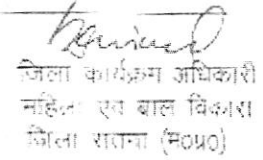 जिला कार्यक्रम अधिकारी
महिला एवं बाल विकास
जिला सतना (म०प्र०)